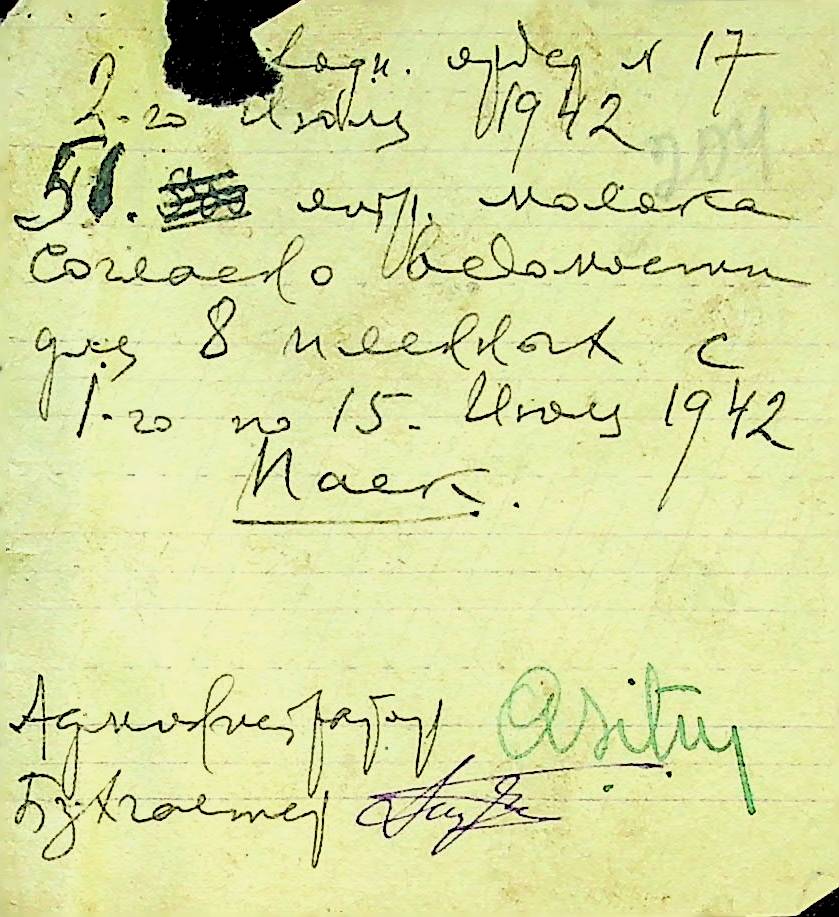 ордер № 17
2-го Июля 1942
204
51. литр. молока
Согласно Ведомости
для 8 пленных с
1-го по 15. Июля 1942
Паек.
Администратор
Бухгалтер